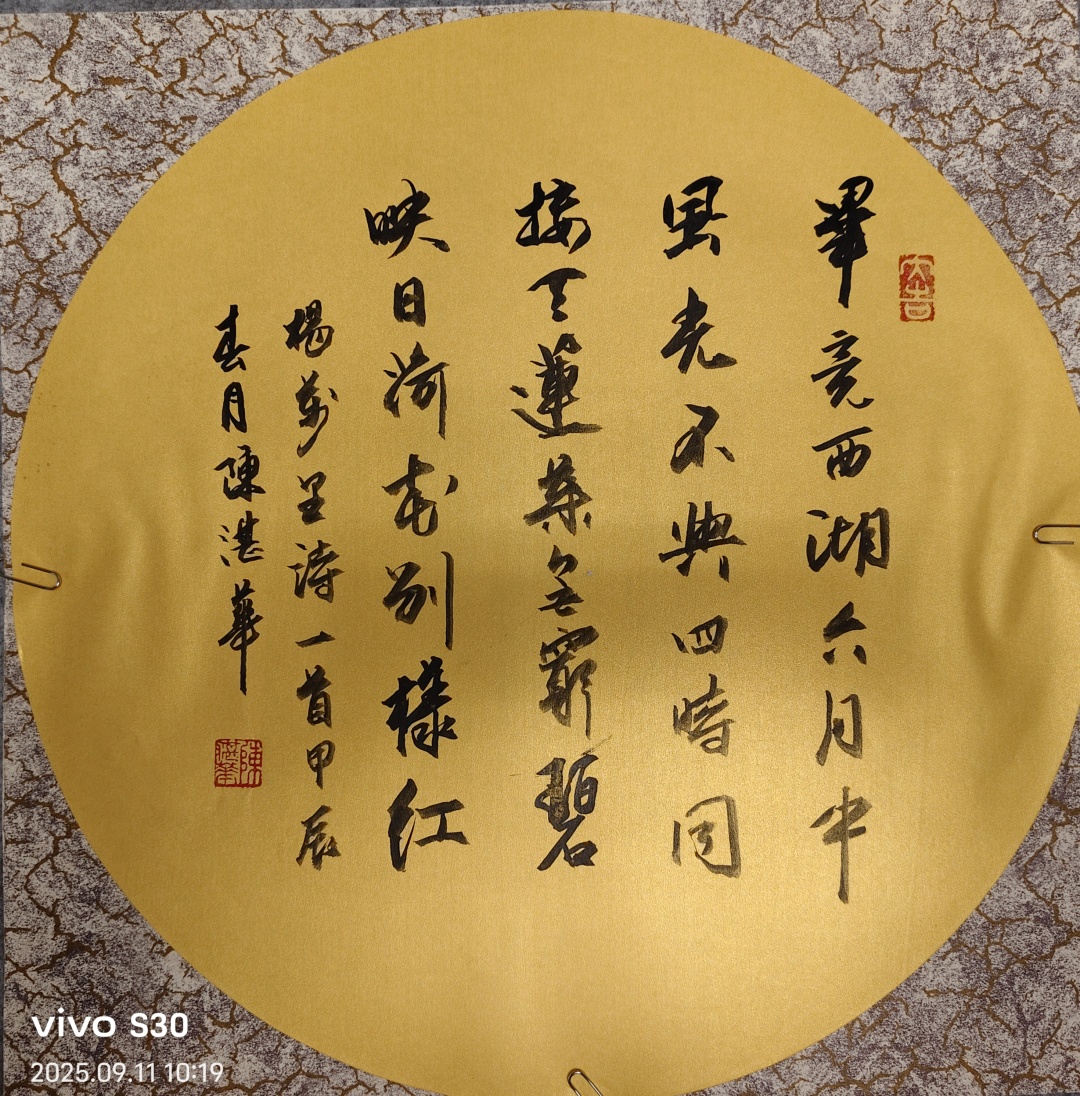 畢竟西湖六月中
風光不與四時同
接天蓮葉無窮碧
映日荷花別樣紅
楊萬里詩一首甲辰
春月陳湛華
大吉
陳湛華
vivo S30
2025.09.11 10:19